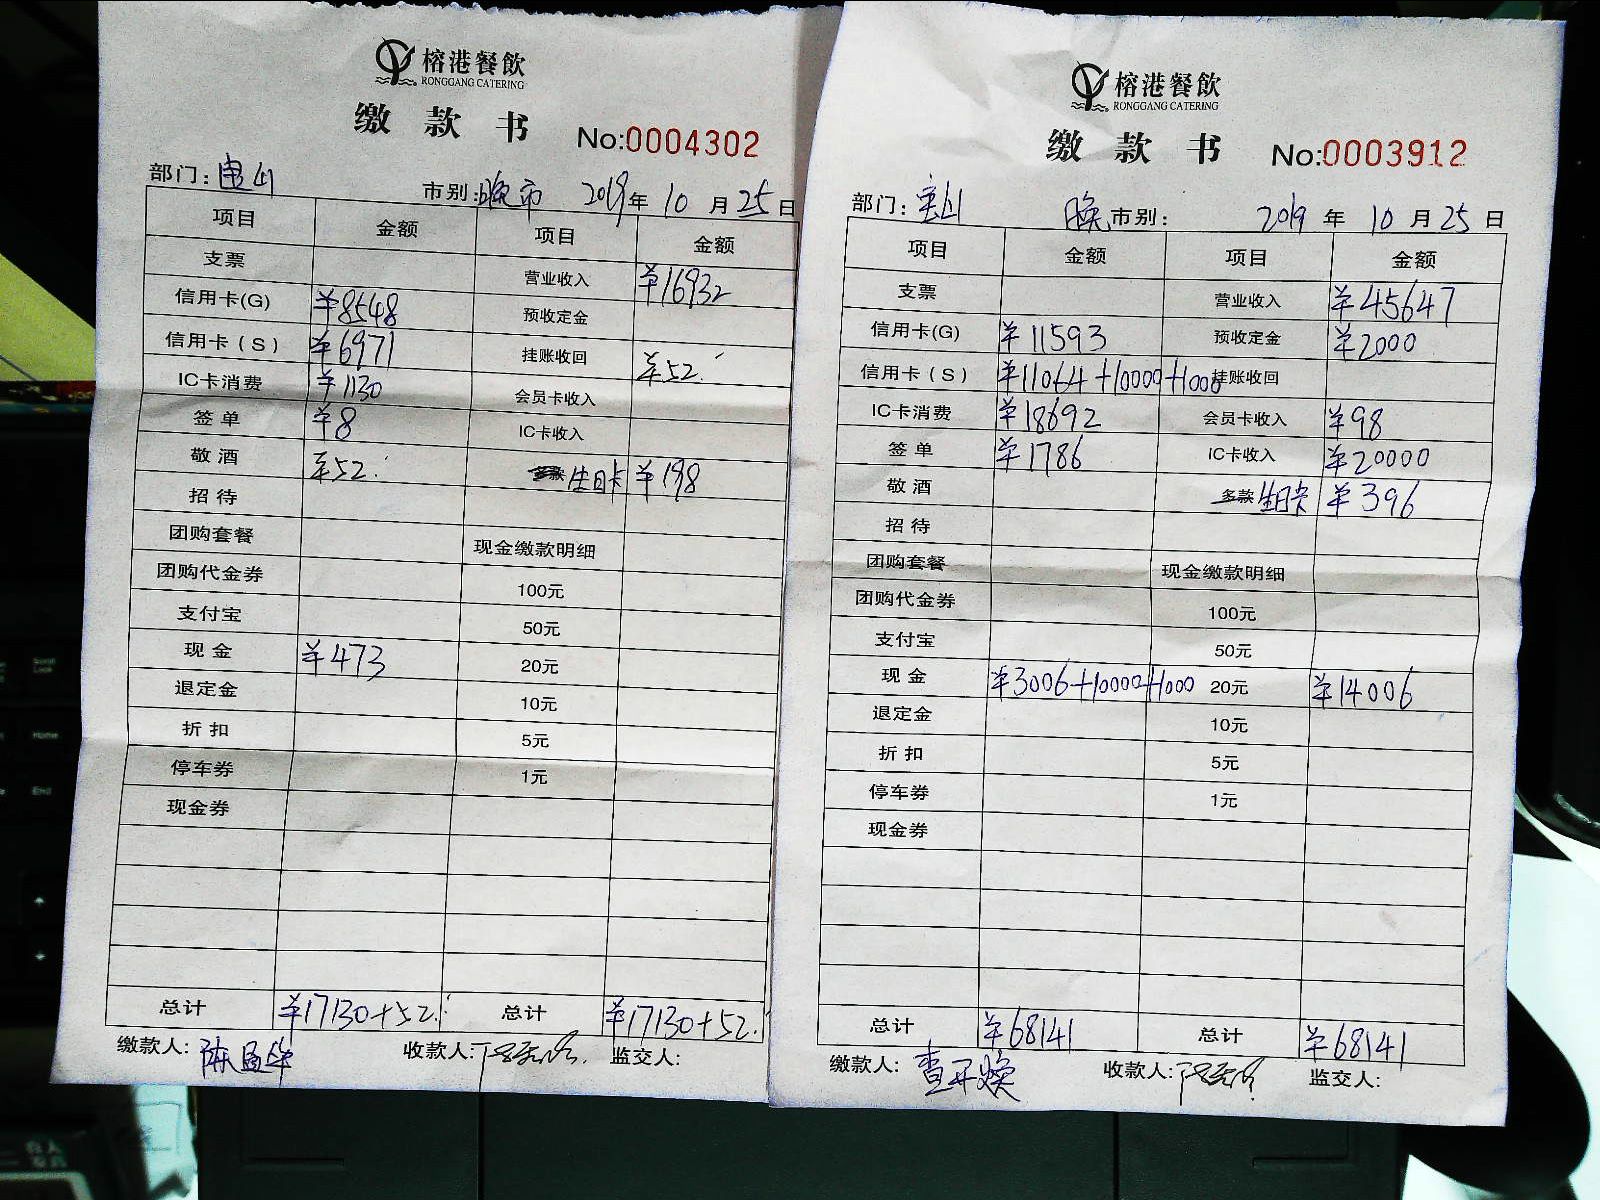 榕港餐飲
RONGGANG CATERING
缴款书 No:0004302
部门: 市别:晚市 2019年10月25日
项目 金额 项目 金额
支票 营业收入 ¥16932
信用卡(G) ¥8548 预收定金
信用卡(S) ¥6971 挂账收回 ¥52.
IC卡消费 ¥1130 会员卡收入
签单 ¥8 IC卡收入
敬酒 ¥52. 生日卡 ¥198
招待
团购套餐 现金缴款明细
团购代金券 100元
支付宝 50元
现金 ¥473 20元
退定金 10元
折扣 5元
停车券 1元
现金券
总计 ¥17130+52. 总计 ¥17130+52.
缴款人: 收款人: 监交人:
榕港餐飲
RONGGANG CATERING
缴款书 No:0003912
部门:宝山 晚市别: 2019年10月25日
项目 金额 项目 金额
支票 营业收入 ¥45647
信用卡(G) ¥11593 预收定金 ¥2000
信用卡(S) ¥11064+10000+1000 挂账收回
IC卡消费 ¥18692 会员卡收入 ¥98
签单 ¥1786 IC卡收入 ¥20000
敬酒 多款 生日卡 ¥396
招待
团购套餐 现金缴款明细
团购代金券 100元
支付宝 50元
现金 ¥3006+10000+1000 20元 ¥14006
退定金 10元
折扣 5元
停车券 1元
现金券
总计 ¥68141 总计 ¥68141
缴款人: 收款人: 监交人: